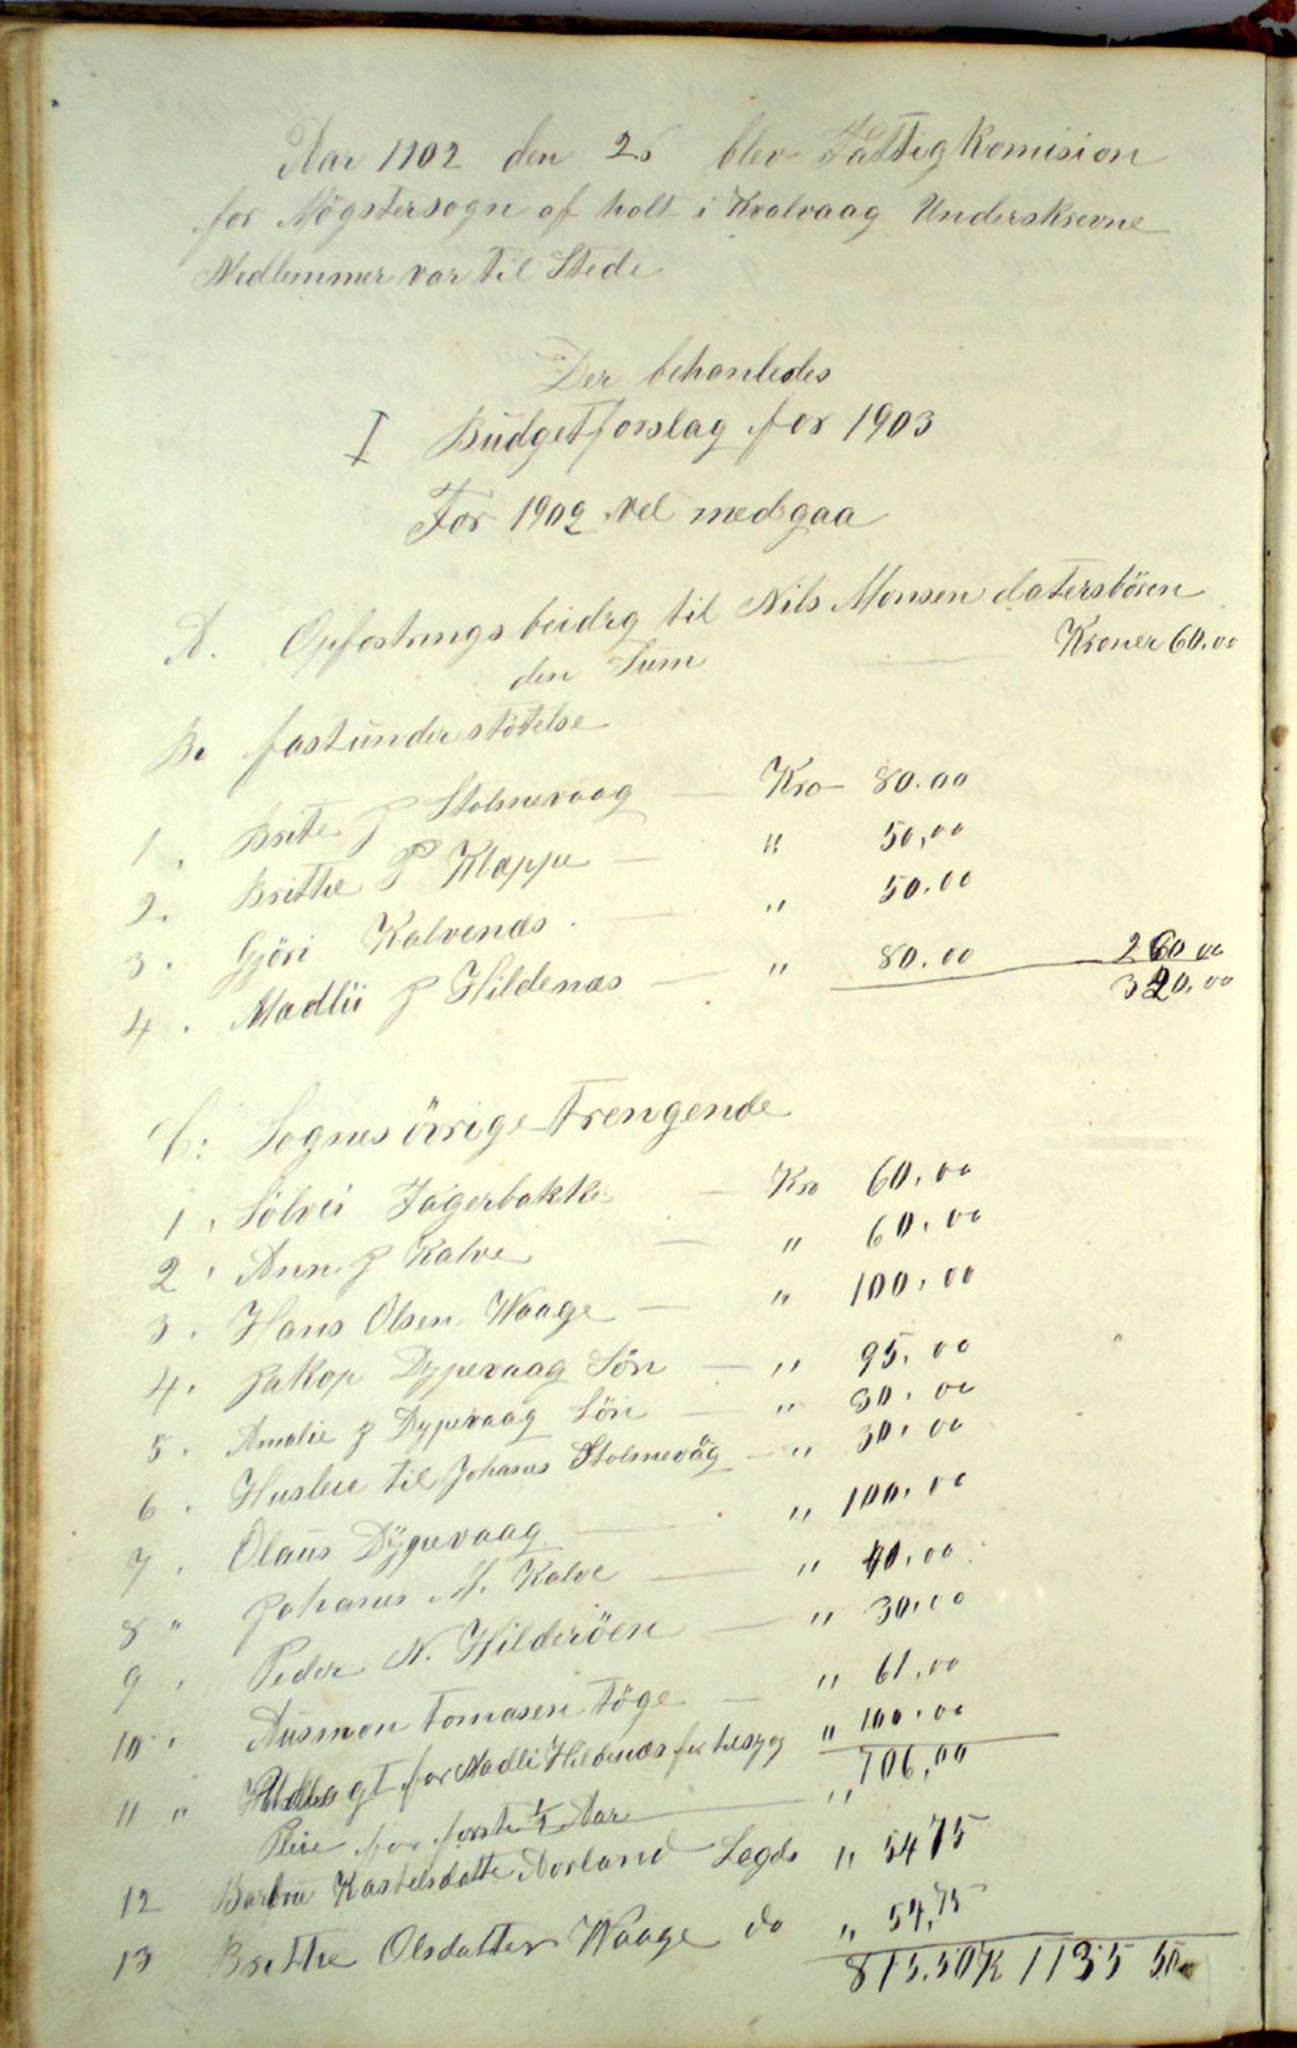 Aar 1902 den 25 blev Fattig Komision
for Mögstersogn af holt i Kvalvaag Underskrevne
Medlemmer var til Stede
Der behanledes
I Budgetforslag for 1903
For 1902 vel medgaa
A. Opfostrings beidrg til Nils Monsen datersbören
den Sum Kroner 60.00
B. fastunderstötelse
1. Brite J Stolmevaag — Kro — 80.00
2. Brithe P Klappe — " 50,00
3. Gjöri Kalvenes. — " 50.00
4. Madlii J Hildenæs — " 80.00 260 00
320,00
C: Sognes övrige Trengende
1. Sölvei Fagerbakke — Kro 60.00
2. Ann J Kalve — " 60.00
3. Hans Olsen Waage — " 100.00
4. Jakop Dypevaag Sön — " 95.00
5. Amalie J Dypevaag Sön — " 30.00
6. Husleie til Johanes Stolmevåg — " 30.00
7. Olaus Dypevaag — " 100.00
8 " Johanes M. Kalve — " 40.00
9. Peder N. Hilderöen — " 30.00
10. Ausmon Tomasen Töge — " 61.00
11 " for Madli Hildenæs for tilsyg og " 100.00
Pleie for förste 1/2 Aar — " 706,00
12 Barbru Kastelsdatter Dorland Legds " 54 75
13 Brithe Olsdatter Waage do " 54,75
815.50 K 1135 50